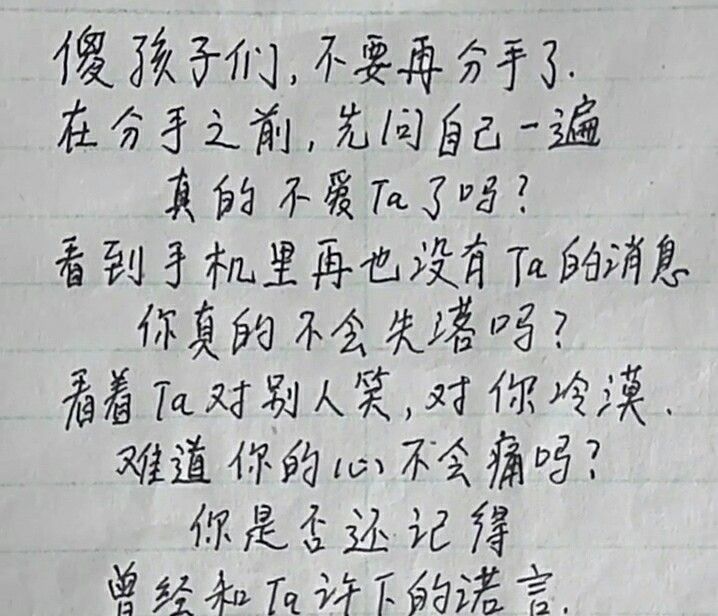 傻孩子们,不要再分手了.
在分手之前,先问自己一遍
真的不爱Ta了吗?
看到手机里再也没有Ta的消息
你真的不会失落吗?
看着Ta对别人笑,对你冷漠.
难道你的心不会痛吗?
你是否还记得
曾经和Ta许下的诺言.